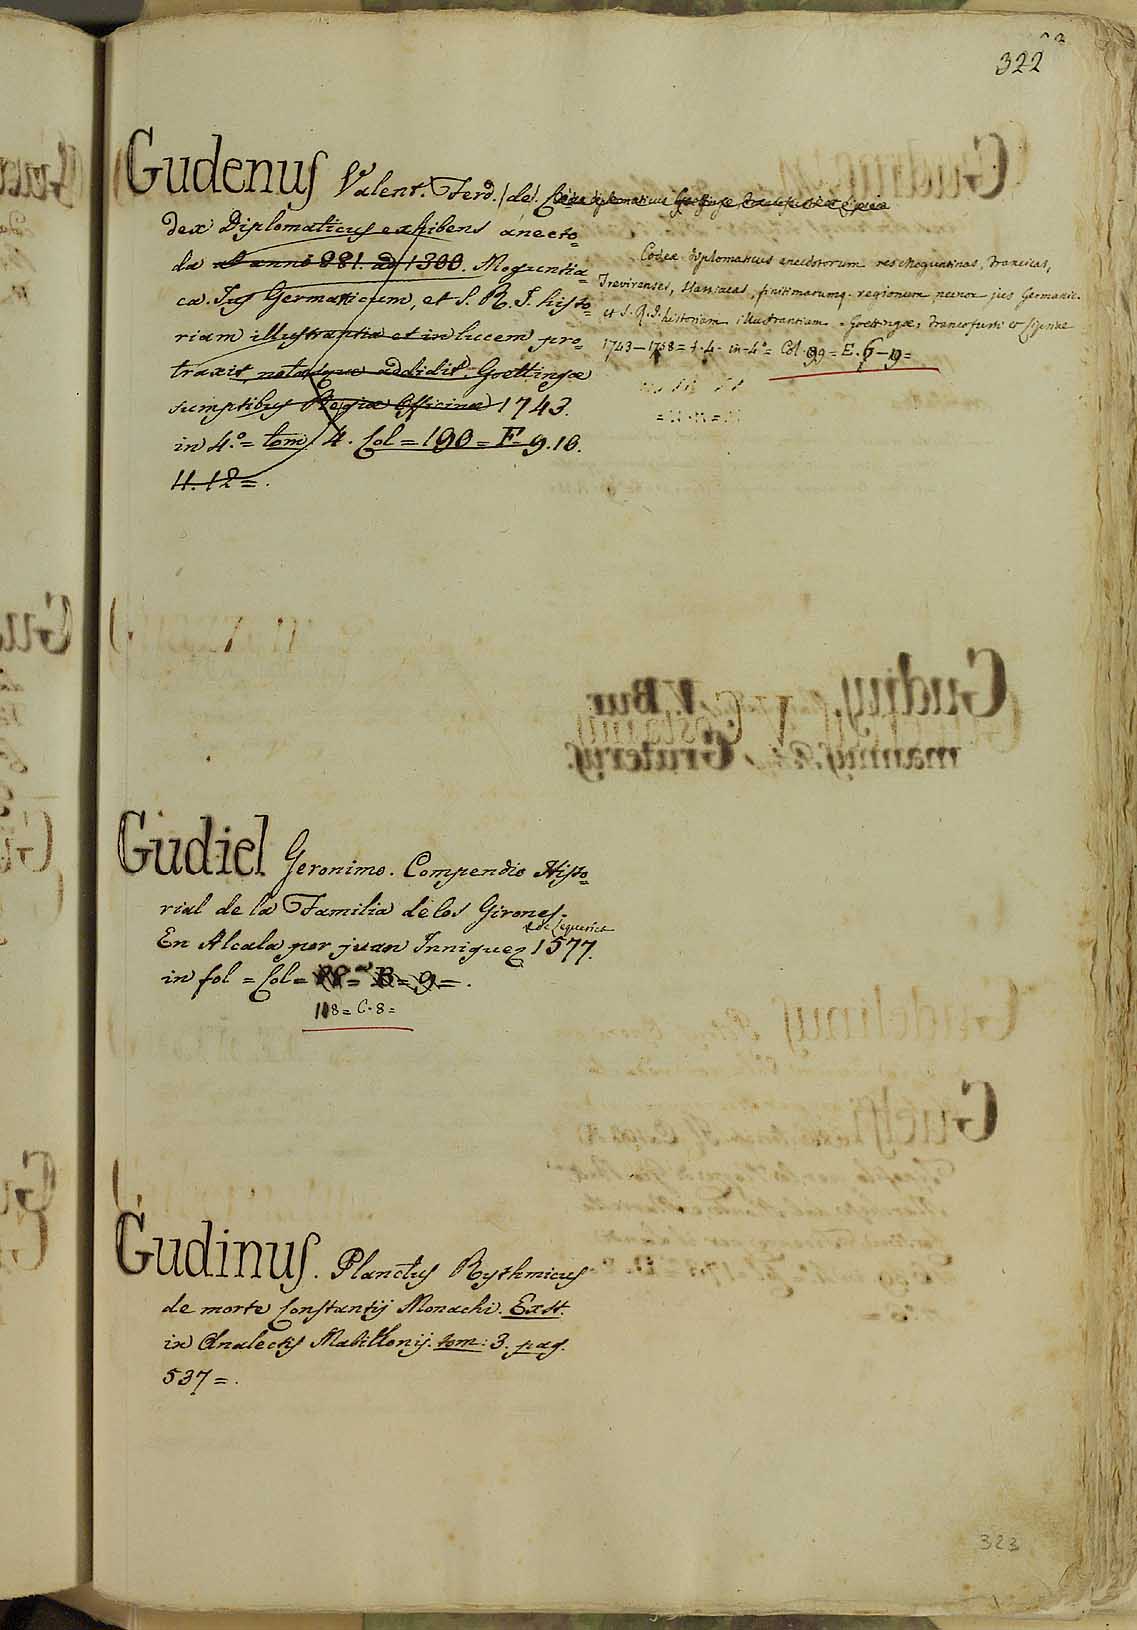 322
Gudenus Valent. Ferd. (de).
dex Diplomaticus exhibens anecto-
da ab anno 881. ad 1300. Moguntia-
ca. Jus Germanicum, et S. R. I. histo-
riam illustrantia et in lucem pro-
traxit, notasque addidit. Goettingæ
sumptibus Regiæ Officinæ 1743.
in 4.º = tom. 4. Col = 190 = F = 9. 10.
11. 12 = .
Codex diplomaticus anecdotorum res Moguntinas, Francicas,
Trevirenses, Hassiacas, finitimarumq. regionum necnon jus Germanic.
et S. R. I. historiam illustrantium. Goettingæ, Francofurti & Lipsiae
1743–1758 = t. 4. in 4º = Col. 99 = E. 6–9 =
Gudiel Geronimo. Compendio Histo-
rial de la Familia de los Girones.
En Alcala por juan Inniguez de Lequerica 1577.
in fol = Col = B = 9 = .
118 = C. 8 =
Gudinus. Planctus Rythmicus
de morte Constantij Monachi. Exst.
in Analectis Mabillonij. tom: 3. pag.
537 = .
323